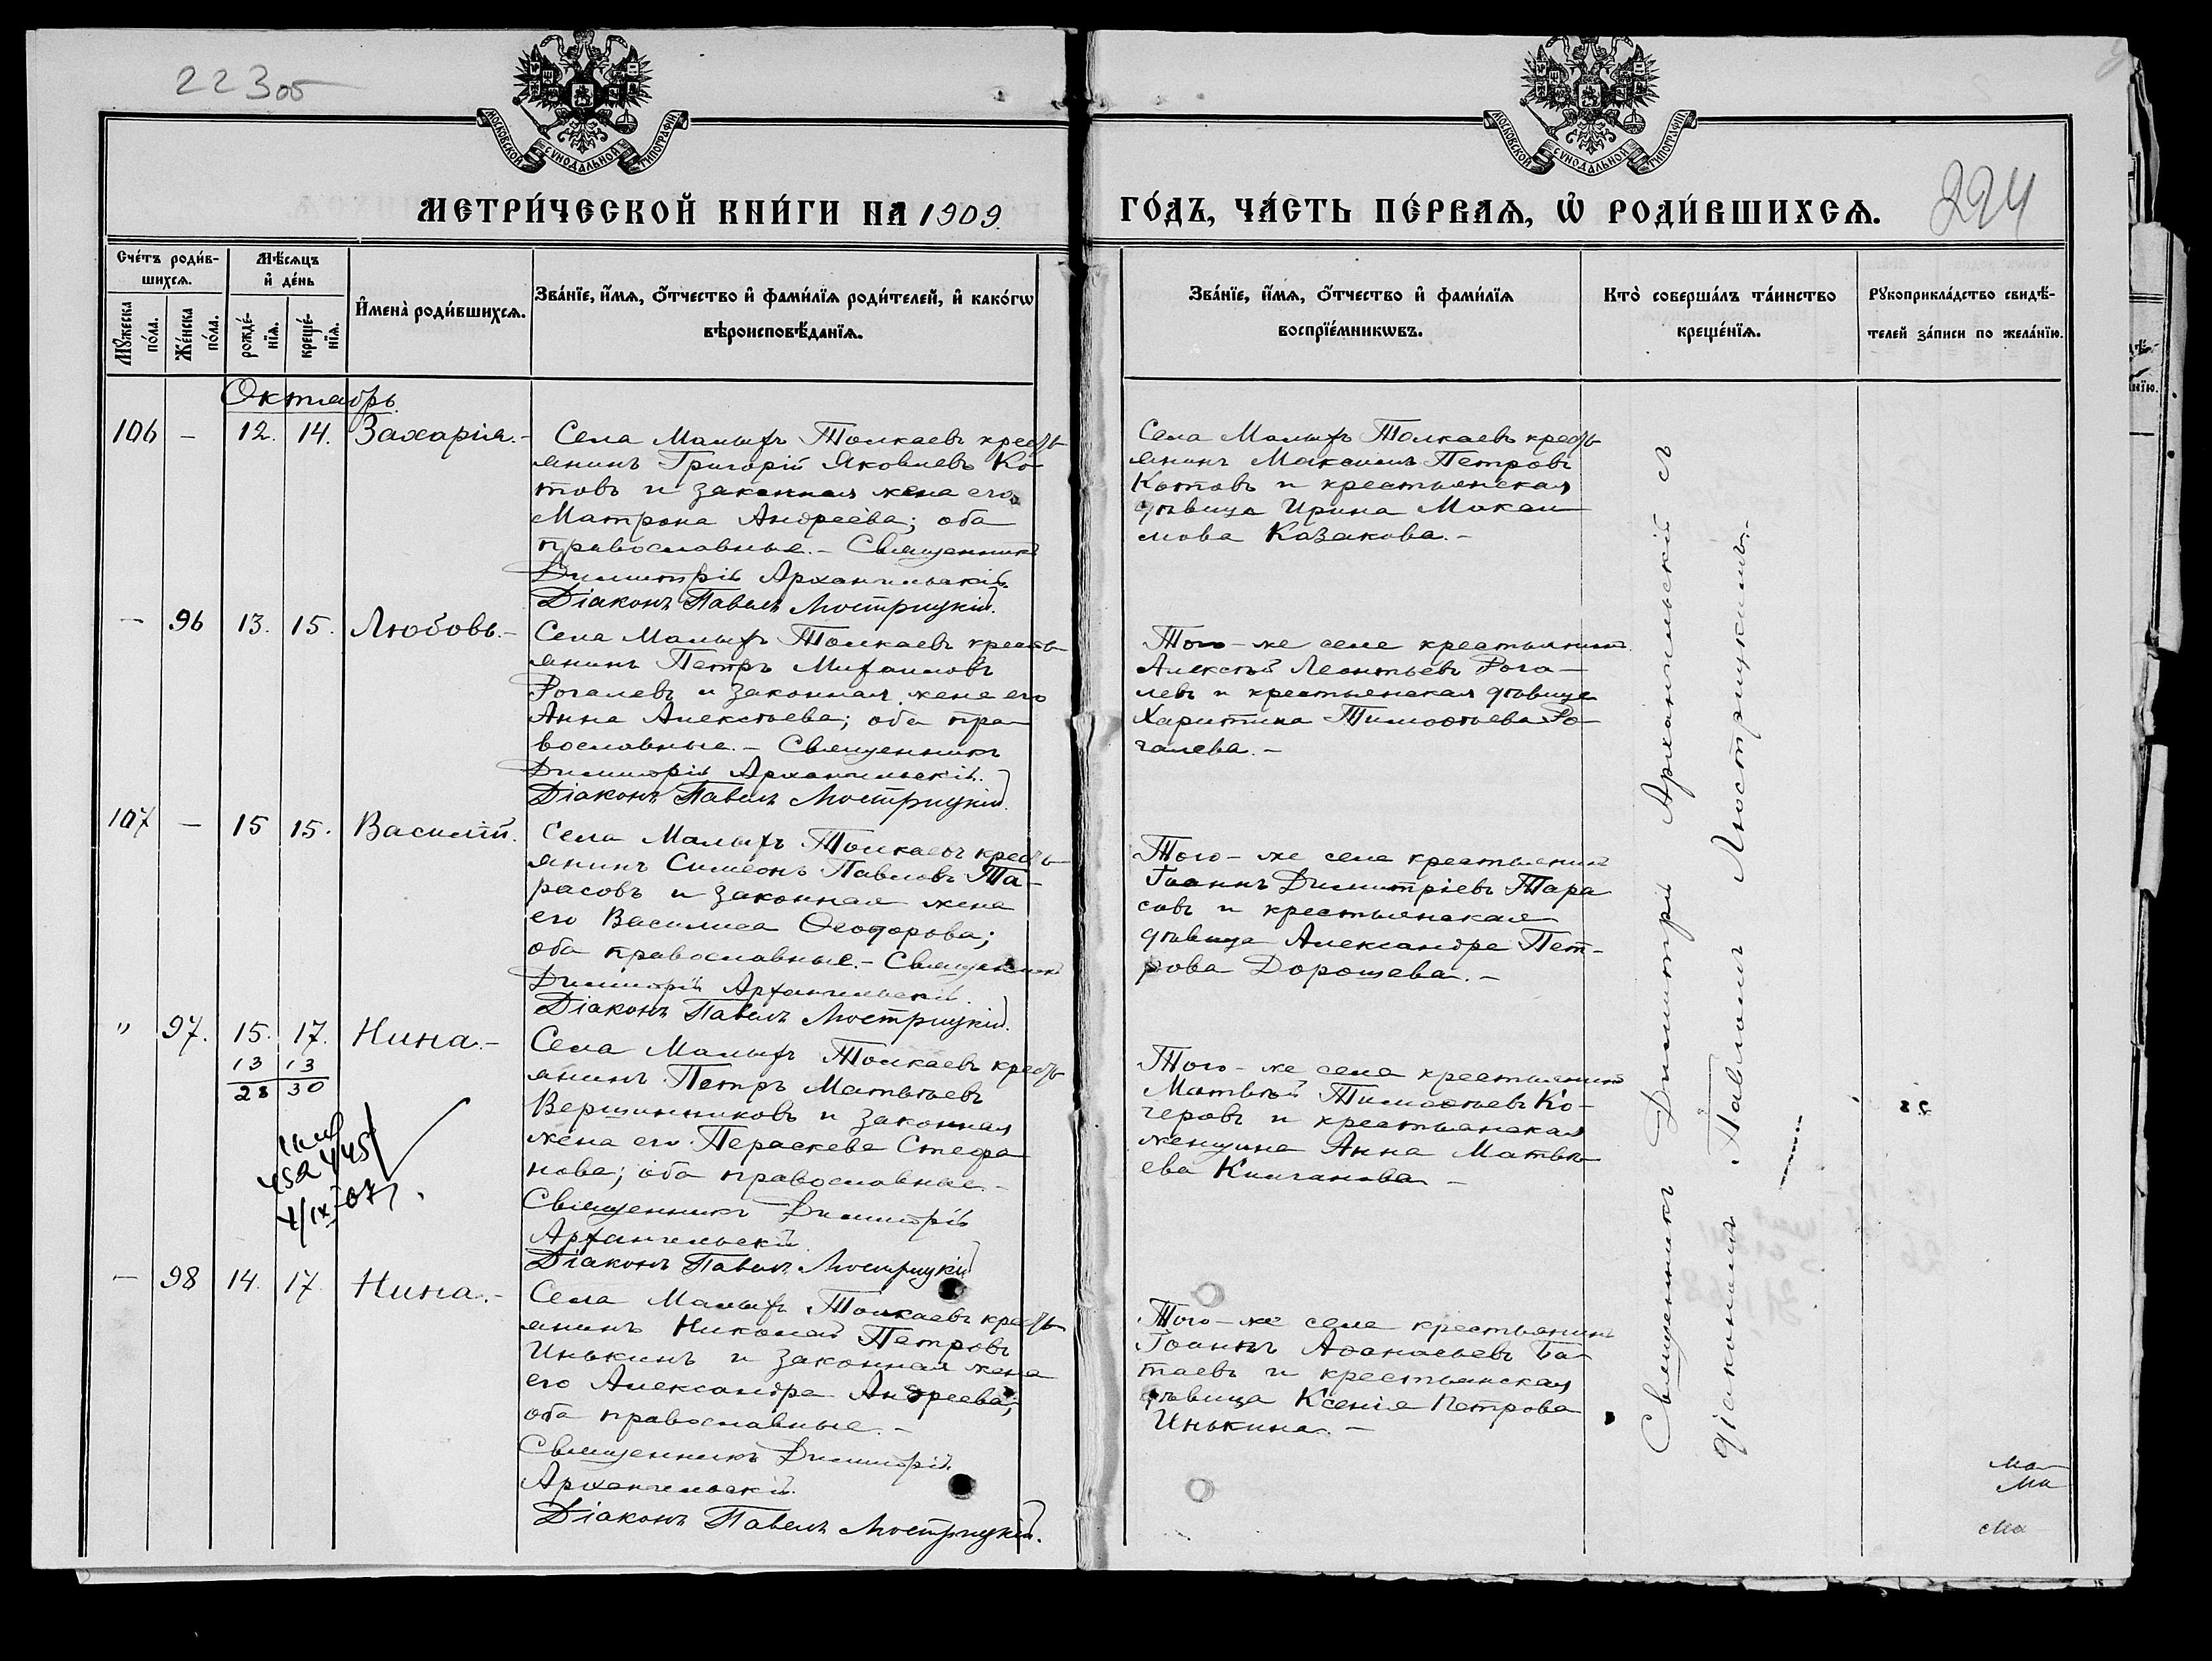 223об
МОСКОВСКОЙ СУНОДАЛЬНОЙ ТИПОГРАФІИ
МЕТРИ́ЧЕСКОЙ КНИ́ГИ НА 1909.
Сче́тъ роди́в-
шихсѧ.
Мѣ́сѧцъ
и҆ де́нь
Мꙋ́жеска по́ла.
Же́нска по́ла.
рожде́-
нїѧ.
креще́-
нїѧ.
И҆мена̀ роди́вшихсѧ.
Зва́нїе, и҆́мѧ, ѻ҆́тчество и҆ фами́лїѧ роди́телей, и҆ како́гѡ
вѣроисповѣ́данїѧ.
Октябрь.
106 – 12. 14. Захарія.-
Села Малыхъ Толкаевъ кресть
янинъ Григорій Яковлевъ Ко-
товъ и законная жена его
Матрона Андреева; оба
православные.- Священникъ
Димитрій Архангельскій.
Діаконъ Павелъ Люстрицкій.
– 96 13. 15. Любовь.-
Села Малыхъ Толкаевъ кресть
янинъ Петръ Михаиловъ
Рогалевъ и законная жена его
Анна Алексѣева; оба пра
вославные.- Священникъ
Димитрій Архангельскій.
Діаконъ Павелъ Люстрицкій.
107 – 15 15. Василій.
Села Малыхъ Толкаевъ кресть
янинъ Симеонъ Павловъ Та-
расовъ и законная жена
его Василиса Ѳеодорова;
оба православные.- Священникъ
Димитрій Архангельскій.
Діаконъ Павелъ Люстрицкій.
" 97. 15. 17. Нина.-
13 13
28 30
Села Малыхъ Толкаевъ кресть
янинъ Петръ Матвѣевъ
Вершинниковъ и законная
жена его Параскева Стефа
нова; оба православные.-
Священникъ Димитрій
Архангельскій.
Діаконъ Павелъ Люстрицкій
– 98 14. 17. Нина.-
Села Малыхъ Толкаевъ кресть
янинъ Николай Петровъ
Инькинъ и законная жена
его Александра Андреева;
оба православные.-
Священникъ Димитрій
Архангельскій.
Діаконъ Павелъ Люстрицкій.
224
МОСКОВСКОЙ СУНОДАЛЬНОЙ ТИПОГРАФІИ
ГО́ДЪ, ЧА́СТЬ ПЕ́РВАѦ, Ѡ҆ РОДИ́ВШИХСѦ.
Зва́нїе, и҆́мѧ, ѻ҆́тчество и҆ фами́лїѧ
воспрїе́мникѡвъ.
Кто̀ соверша́лъ та́инство
креще́нїѧ.
Рꙋкоприкла́дство свидѣ́-
телей за́писи по жела́нїю.
Села Малыхъ Толкаевъ кресть
янинъ Максимъ Петровъ
Котовъ и крестьянская
дѣвица Ирина Макси
мова Казакова.-
Того-же села крестьянинъ
Алексѣй Леонтьевъ Рога-
левъ и крестьянская дѣвица
Харитина Тимоѳѣева Ро-
галева.-
Того-же села крестьянинъ
Іоаннъ Димитріевъ Тара
совъ и крестьянская
дѣвица Александра Пет-
рова Дорошева.-
Того-же села крестьянинъ
Матвѣй Тимоѳѣевъ Ко-
черовъ и крестьянская
женщина Анна Матвѣ
ева -
Того-же села крестьянинъ
Іоаннъ Аѳанасьевъ Ба-
таевъ и крестьянская
дѣвица Ксенія Петрова
Инькина.-
Священникъ Димитрій Архангельскій съ
діакономъ Павломъ Люстрицкимъ.-